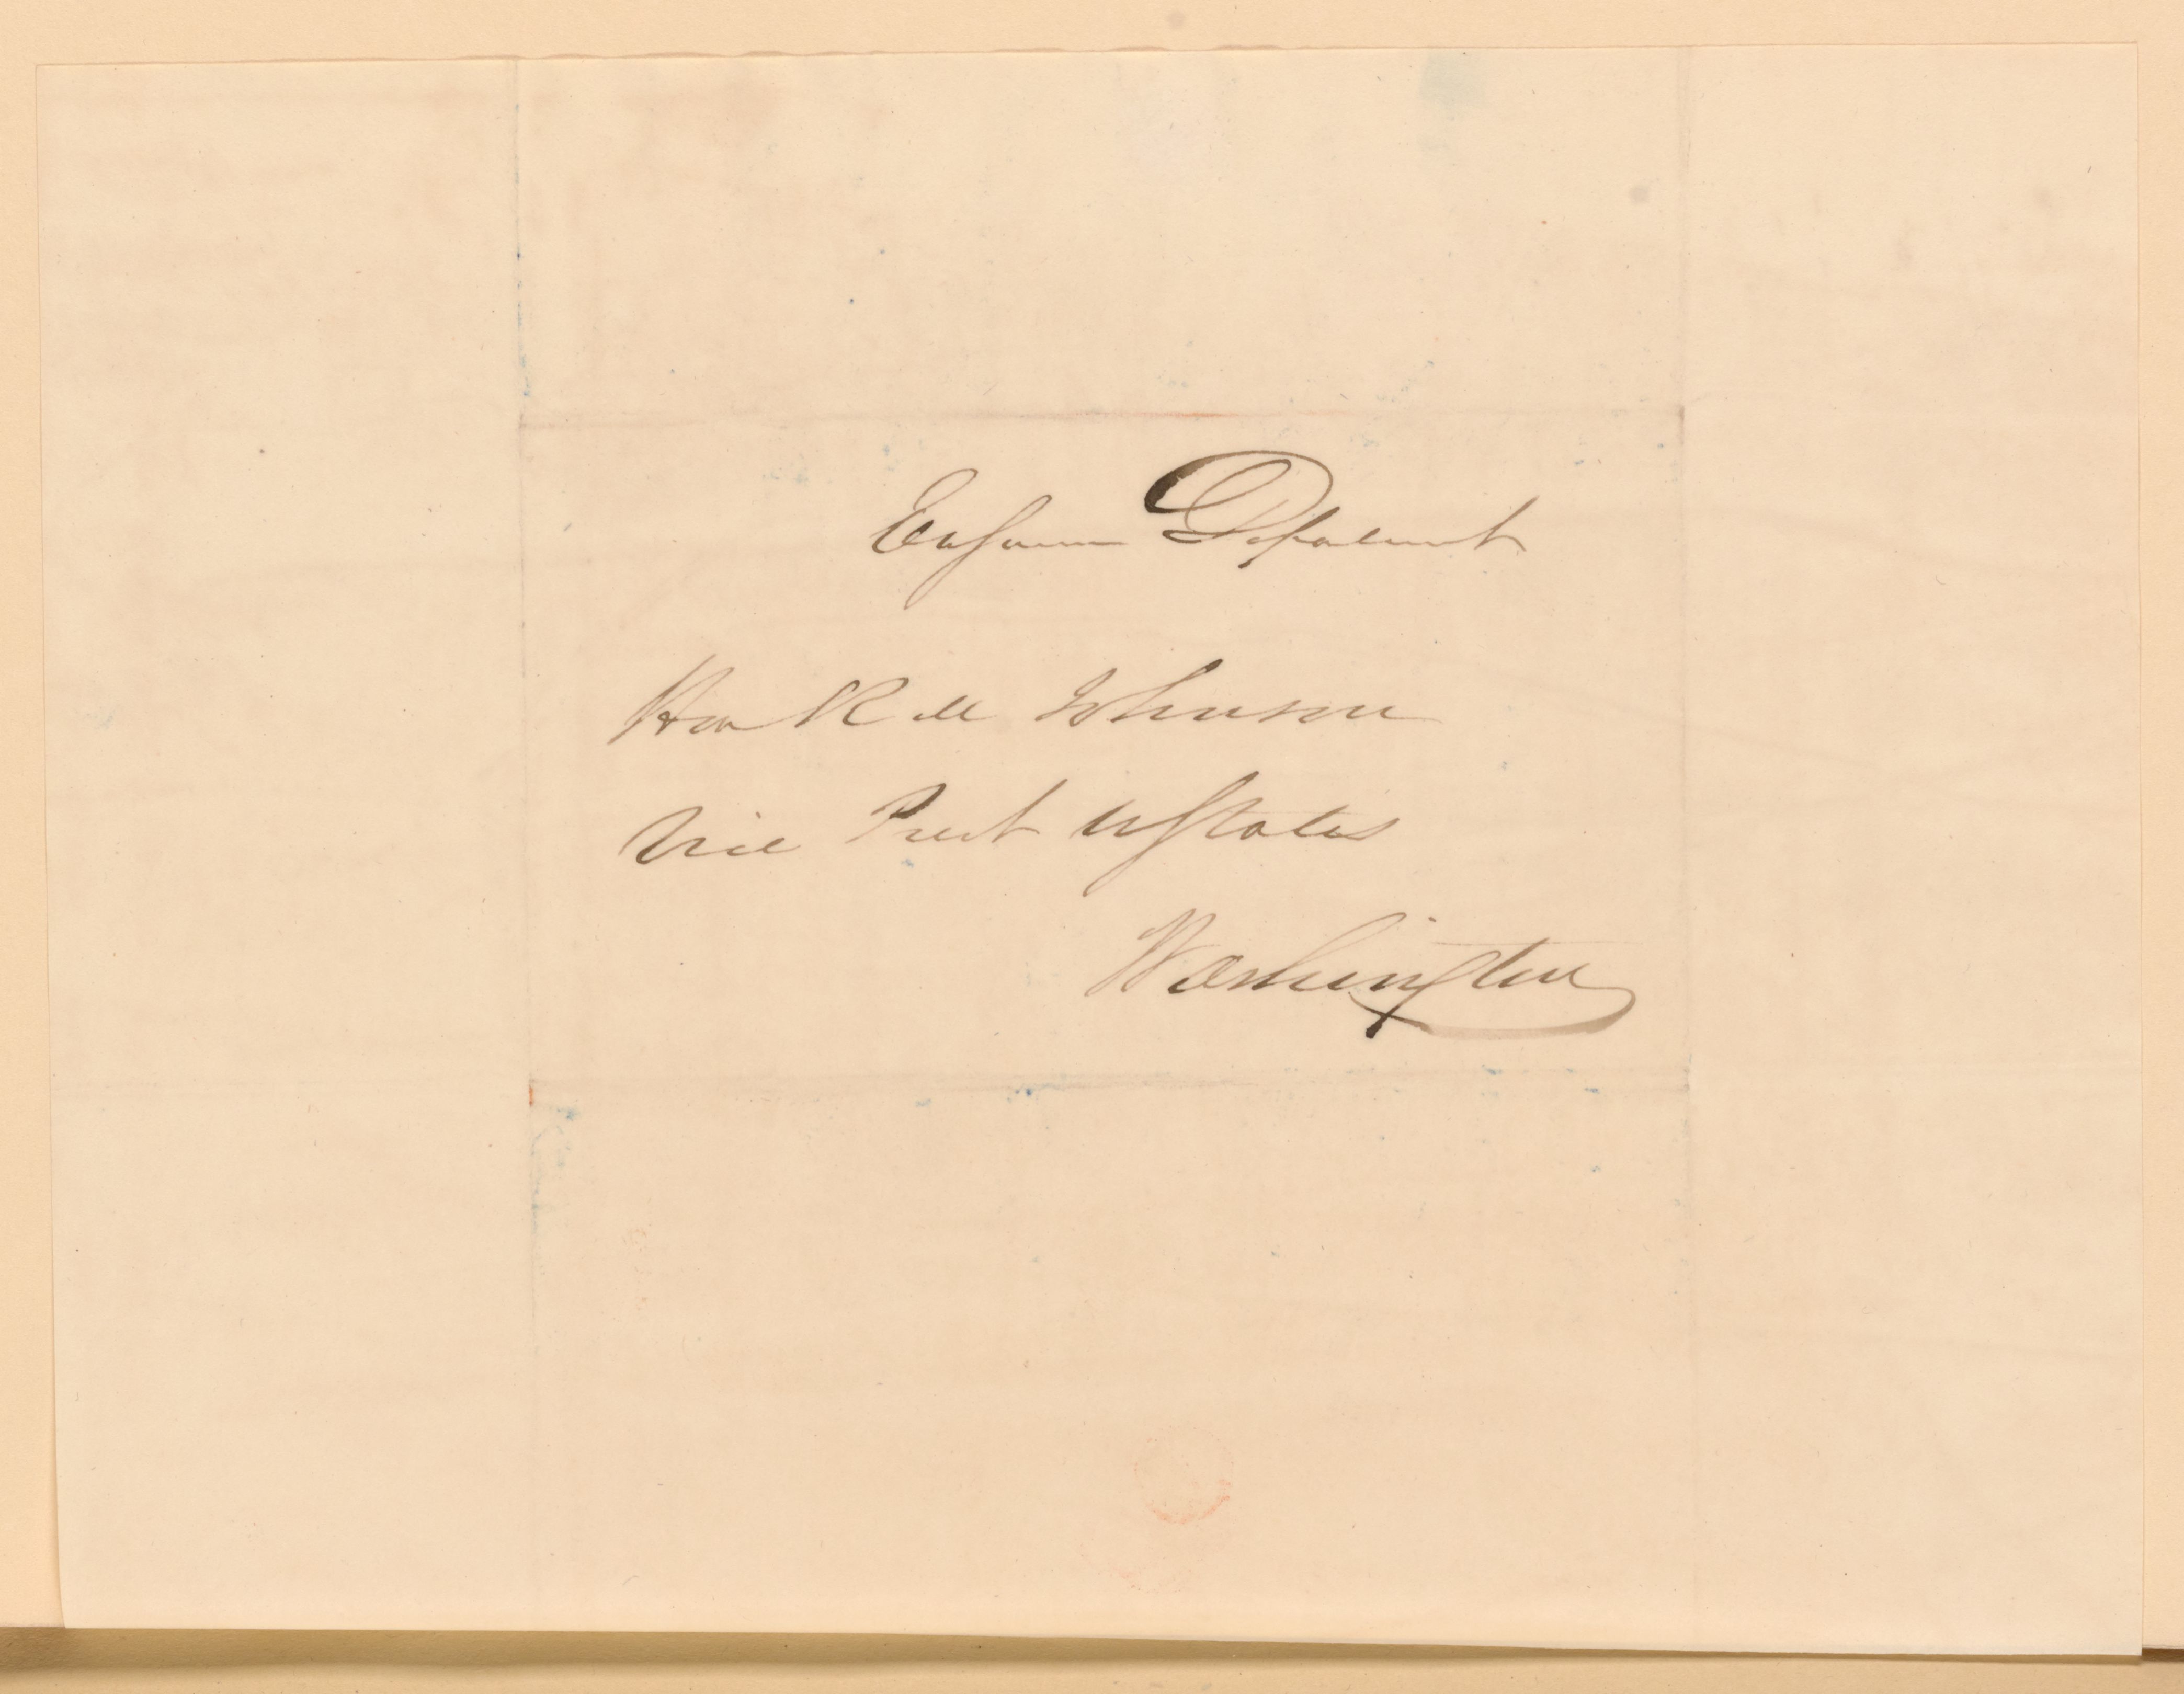 Engineer Department
Hon R M Johnson
Vice Prest UStates
Washington